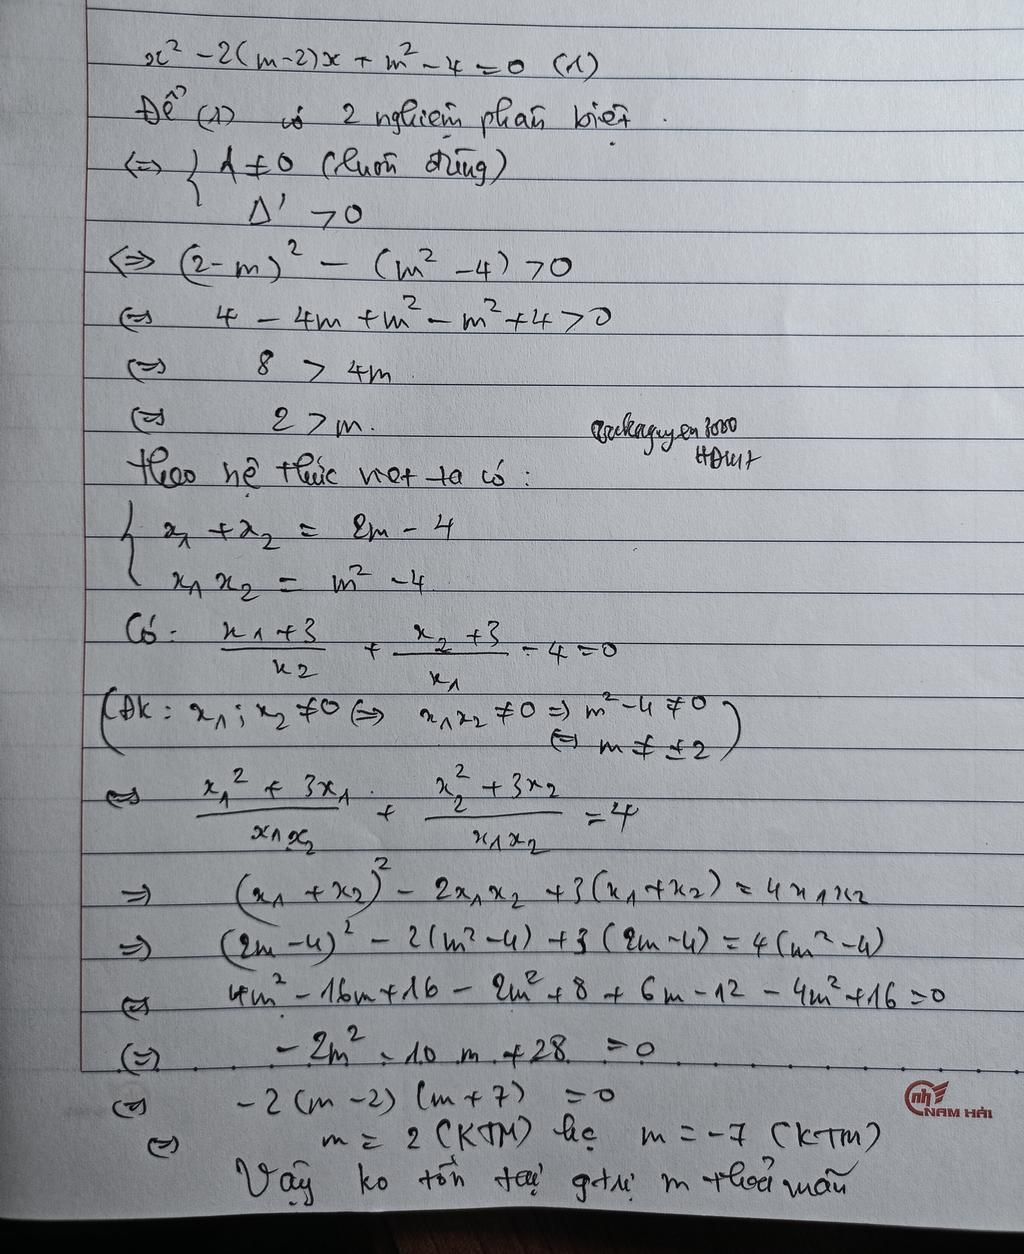 x² - 2(m-2)x + m² - 4 = 0 (1)
Để (1) có 2 nghiệm phân biệt.
<=> { 1 ≠ 0 (luôn đúng)
Δ' > 0
<=> (2-m)² - (m² - 4) > 0
<=> 4 - 4m + m² - m² + 4 > 0
<=> 8 > 4m
<=> 2 > m.
Theo hệ thức viet ta có:
{ x₁ + x₂ = 2m - 4
x₁x₂ = m² - 4
Có: (x₁+3)/x₂ + (x₂+3)/x₁ - 4 = 0
(ĐK: x₁; x₂ ≠ 0 <=> x₁x₂ ≠ 0 => m² - 4 ≠ 0
<=> m ≠ ±2)
<=> (x₁² + 3x₁)/(x₁x₂) + (x₂² + 3x₂)/(x₁x₂) = 4
=> (x₁ + x₂)² - 2x₁x₂ + 3(x₁ + x₂) = 4x₁x₂
=> (2m-4)² - 2(m²-4) + 3(2m-4) = 4(m²-4)
<=> 4m² - 16m + 16 - 2m² + 8 + 6m - 12 - 4m² + 16 = 0
<=> - 2m² - 10m + 28 = 0
<=> -2(m-2)(m+7) = 0
<=> m = 2 (KTM) hc m = -7 (KTM)
Vậy ko tồn tại gtrị m thoả mãn
NAM HẢI